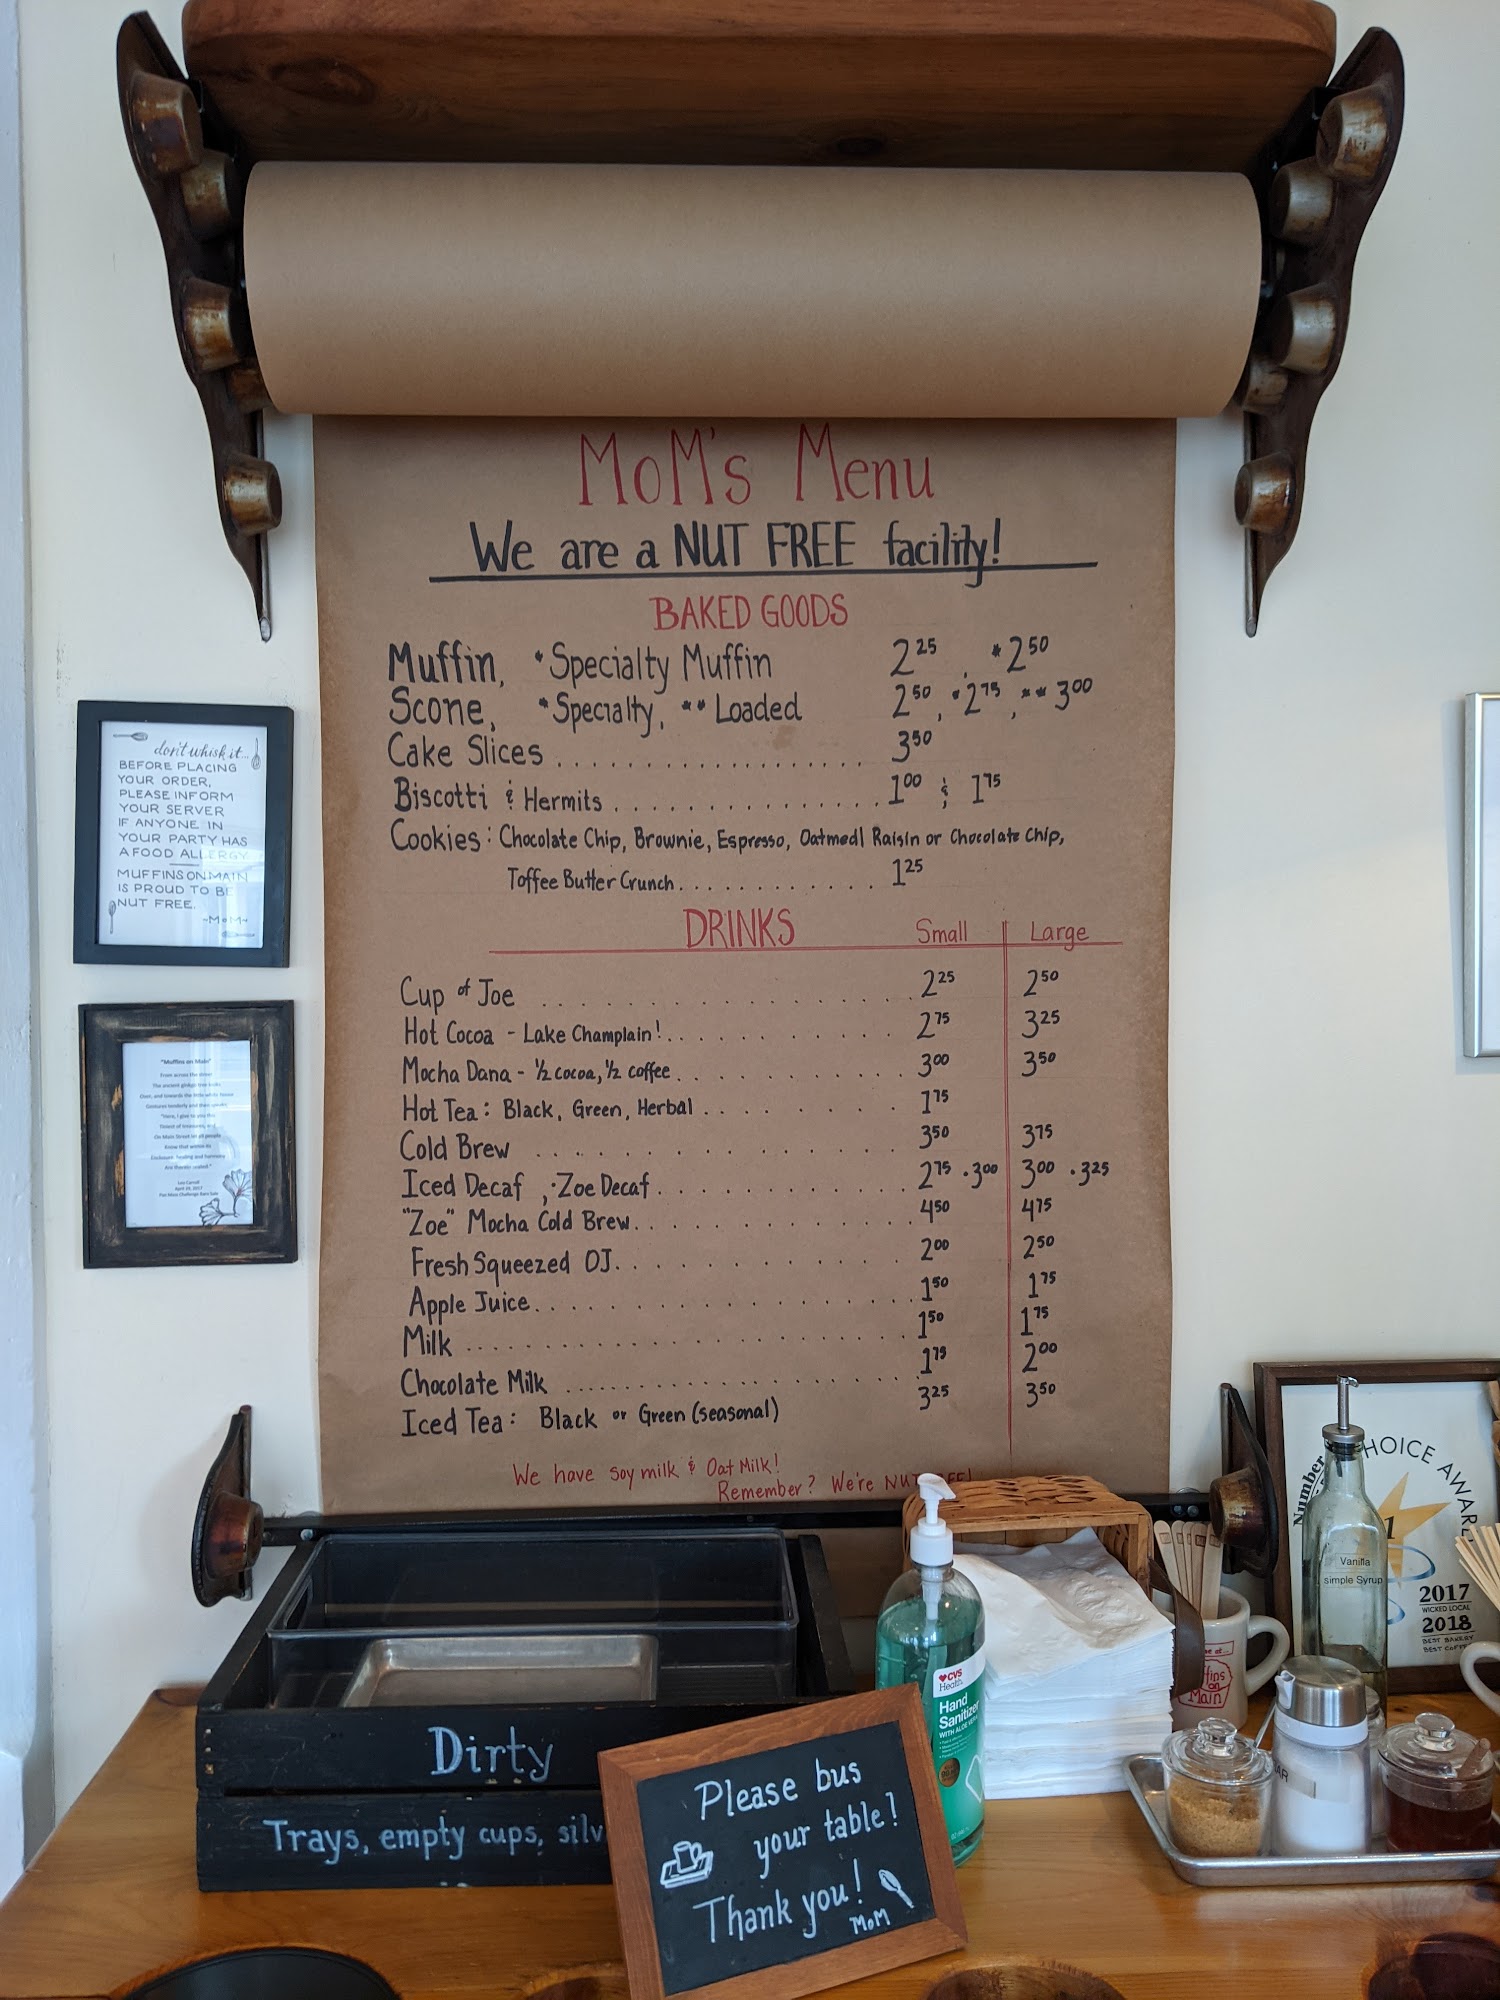 MoM's Menu
We are a NUT FREE facility!
BAKED GOODS
Muffin, *Specialty Muffin 2.25, *2.50
Scone, *Specialty, **Loaded 2.50, *2.75, **3.00
Cake Slices .................. 3.50
Biscotti & Hermits ............... 1.00 & 1.75
Cookies: Chocolate Chip, Brownie, Espresso, Oatmeal Raisin or Chocolate Chip,
Toffee Butter Crunch........... 1.25
DRINKS Small Large
Cup of Joe ................ 2.25 2.50
Hot Cocoa - Lake Champlain!........... 2.75 3.25
Mocha Dana - 1/2 cocoa, 1/2 coffee........... 3.00 3.50
Hot Tea: Black, Green, Herbal .......... 1.75
Cold Brew ................ 3.50 3.75
Iced Decaf, ·Zoe Decaf........... 2.75 ·3.00 3.00 ·3.25
"Zoe" Mocha Cold Brew............ 4.50 4.75
Fresh Squeezed OJ............. 2.00 2.50
Apple Juice................. 1.50 1.75
Milk ...................... 1.50 1.75
Chocolate Milk .................. 1.75 2.00
Iced Tea: Black or Green (seasonal) 3.25 3.50
We have soy milk & Oat Milk!
Remember? We're NUT FREE!
don't whisk it...
BEFORE PLACING
YOUR ORDER,
PLEASE INFORM
YOUR SERVER
IF ANYONE IN
YOUR PARTY HAS
A FOOD ALLERGY
MUFFINS ON MAIN
IS PROUD TO BE
NUT FREE.
~MoM~
"Muffins on Main"
From across the street
The ancient ginkgo tree looks
Over, and towards the little white house
Gestures tenderly and then speaks
"Here, I give to you this
Tiniest of treasures, and
On Main Street let all people
Know that within its
Enclosure healing and harmony
Are therein sealed."
Dirty
Trays, empty cups, silv
Please bus
your table!
Thank you!
MoM
CVS
Health
Hand
Sanitizer
WITH ALOE
Muffins
on
Main
Vanilla
simple Syrup
Number
CHOICE AWAR
1
2017
WICKED LOCAL
2018
BEST BAKERY
BEST COFF